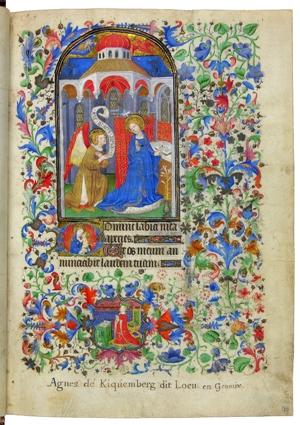 Domine labia mea
aperies.
Et os meum an
nunciabit laudem tuam.
Agnes de Kiquemberg dit Loeu en Gennixe.